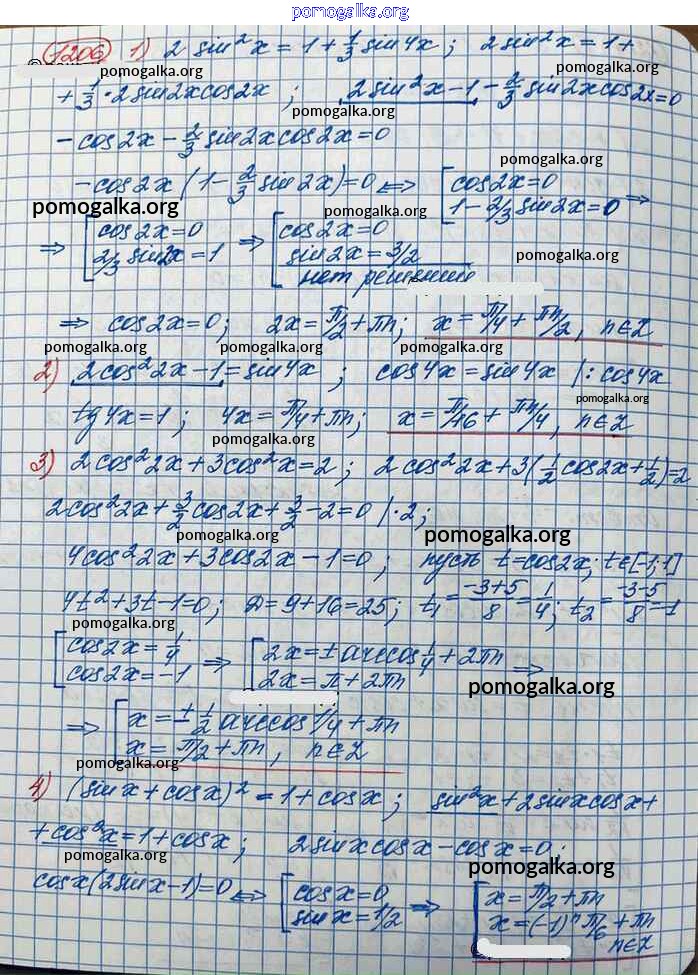 pomogalka.org
1206 1) 2 sin²x = 1 + 1/3 sin4x; 2sin²x = 1 +
pomogalka.org pomogalka.org
+ 1/3 · 2sin2xcos2x ; 2sin²x-1 - 2/3 sin2xcos2x=0
pomogalka.org
-cos2x - 2/3 sin2xcos2x=0
pomogalka.org
-cos2x(1 - 2/3 sin2x)=0 ⟺ [cos2x=0
1-2/3 sin2x=0 ⟹
pomogalka.org pomogalka.org
⟹ [cos2x=0
2/3 sin2x=1 ⟹ [cos2x=0
sin2x=3/2
нет решений
pomogalka.org
⟹ cos2x=0; 2x=π/2+πn; x=π/4+πn/2, n∈Z
pomogalka.org pomogalka.org pomogalka.org
2) 2cos²2x-1=sin4x ; cos4x=sin4x |:cos4x
pomogalka.org
tg4x=1; 4x=π/4+πn; x=π/16+πn/4, n∈Z
pomogalka.org
3) 2cos²2x+3cos²x=2; 2cos²2x+3(1/2 cos2x+1/2)=2
2cos²2x+3/2 cos2x+3/2-2=0 |·2;
pomogalka.org pomogalka.org
4cos²2x+3cos2x-1=0; пусть t=cos2x; t∈[-1;1]
4t²+3t-1=0; D=9+16=25; t₁=(-3+5)/8=1/4; t₂=(-3-5)/8=-1
pomogalka.org
[cos2x=1/4
cos2x=-1 ⟹ [2x=±arccos1/4+2πn
2x=π+2πn ⟹
pomogalka.org
⟹ [x=±1/2 arccos1/4+πn
x=π/2+πn, n∈Z
pomogalka.org
4) (sinx+cosx)²=1+cosx; sin²x+2sinxcosx+
+cos²x=1+cosx; 2sinxcosx-cosx=0;
pomogalka.org pomogalka.org
cosx(2sinx-1)=0 ⟺ [cosx=0
sinx=1/2 ⟹ [x=π/2+πn
x=(-1)ⁿπ/6+πn
n∈Z